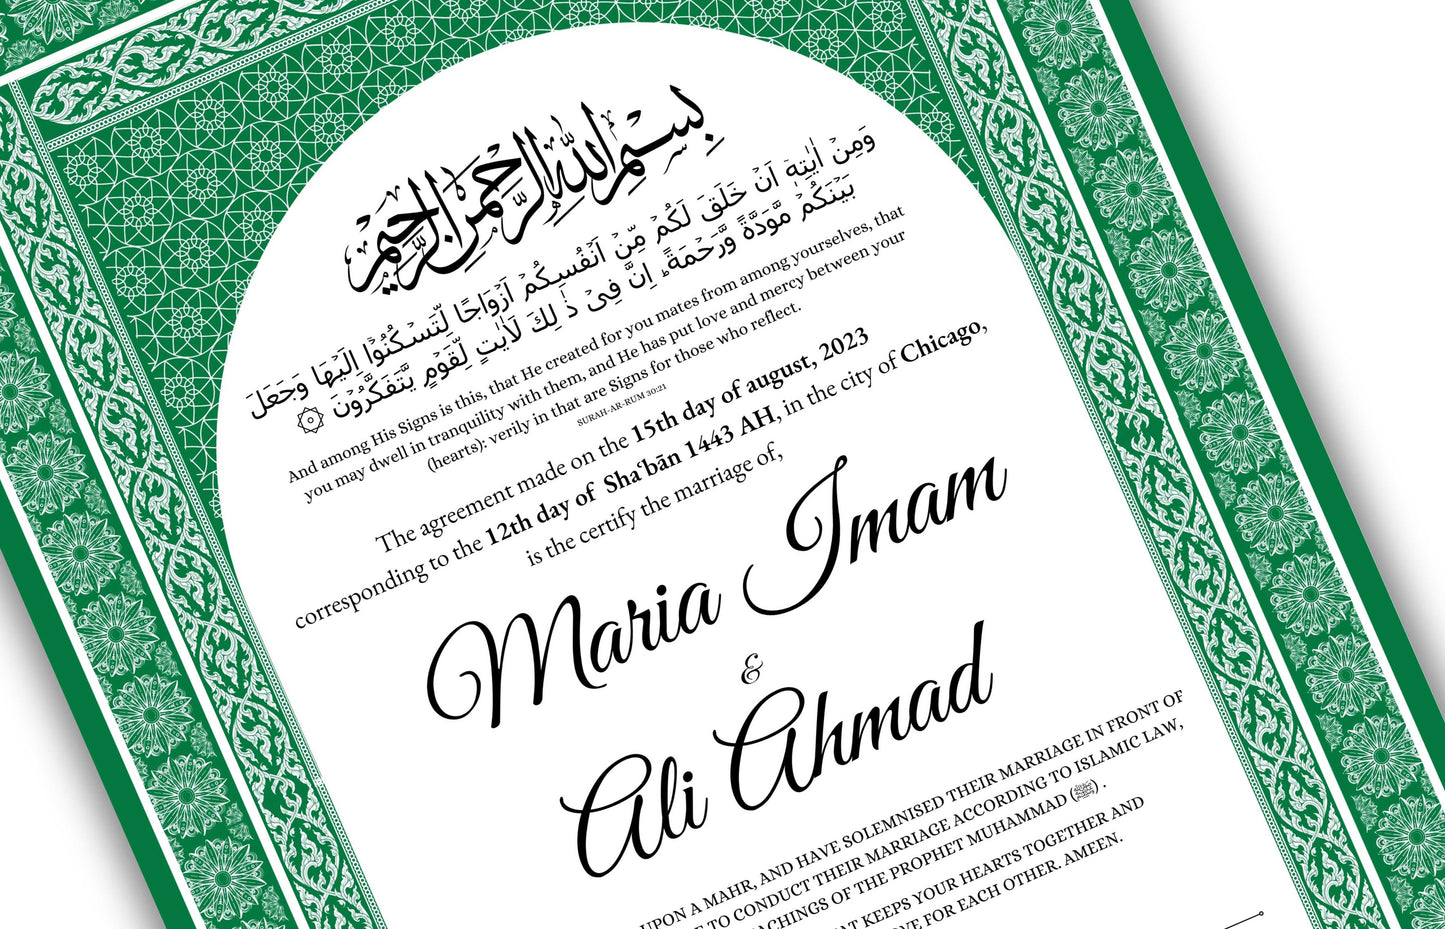 بِسْمِ اللهِ الرَّحْمٰنِ الرَّحِيْمِ
وَمِنْ اٰيٰتِهٖۤ اَنْ خَلَقَ لَكُمْ مِّنْ اَنْفُسِكُمْ اَزْوَاجًا لِّتَسْكُنُوْۤا اِلَيْهَا وَجَعَلَ
بَيْنَكُمْ مَّوَدَّةً وَّرَحْمَةً ؕ اِنَّ فِىْ ذٰ لِكَ لَاٰيٰتٍ لِّقَوْمٍ يَّتَفَكَّرُوْنَ ۞
And among His Signs is this, that He created for you mates from among yourselves, that
you may dwell in tranquility with them, and He has put love and mercy between your
(hearts): verily in that are Signs for those who reflect.
SURAH-AR-RUM 30:21
The agreement made on the 15th day of august, 2023
corresponding to the 12th day of Shaʿbān 1443 AH, in the city of Chicago,
is the certify the marriage of,
Maria Imam
&
Ali Ahmad
UPON A MAHR, AND HAVE SOLEMNISED THEIR MARRIAGE IN FRONT OF
TO CONDUCT THEIR MARRIAGE ACCORDING TO ISLAMIC LAW,
OF THE PROPHET MUHAMMAD (ﷺ) .
KEEPS YOUR HEARTS TOGETHER AND
FOR EACH OTHER. AMEEN.